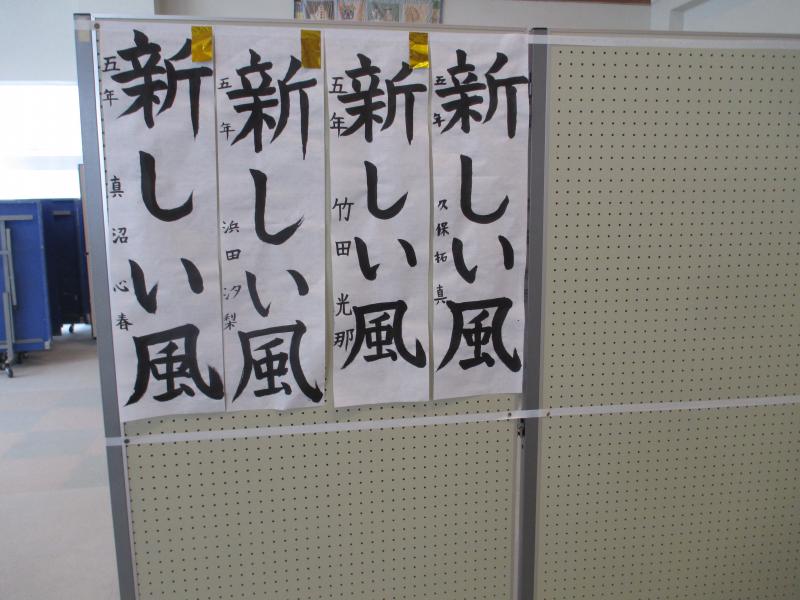 新しい風
五年 久保拓真
新しい風
五年 竹田光那
新しい風
五年 浜田汐梨
新しい風
五年 真沼心春